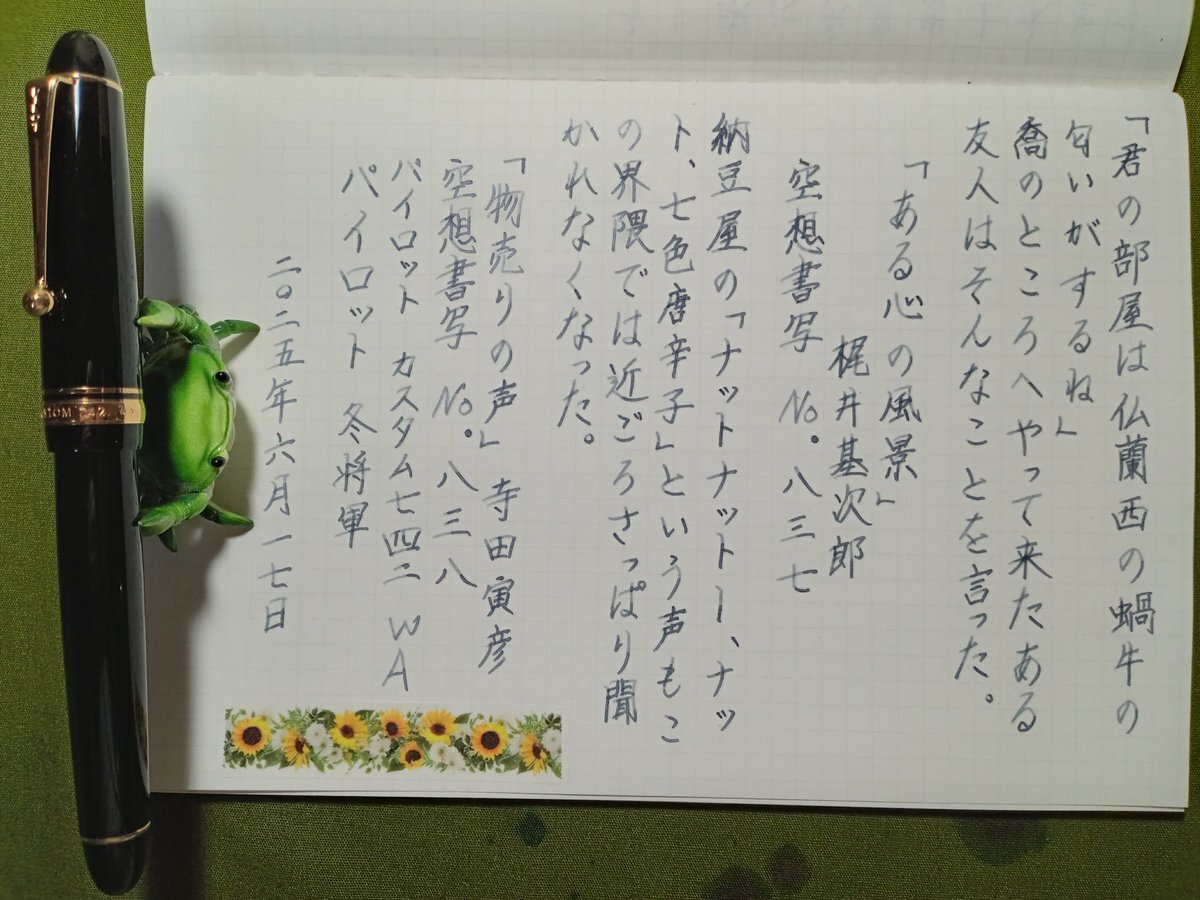 「君の部屋は仏蘭西の蝸牛の
匂いがするね」
喬のところへやって来たある
友人はそんなことを言った。
「ある心の風景」
梶井基次郎
空想書写 No.八三七
納豆屋の「ナットナットー、ナッ
ト、七色唐辛子」という声もこ
の界隈では近ごろさっぱり聞
かれなくなった。
「物売りの声」 寺田寅彦
空想書写 No.八三八
パイロット カスタム七四二 WA
パイロット 冬将軍
二〇二五年六月一七日
STOM 742